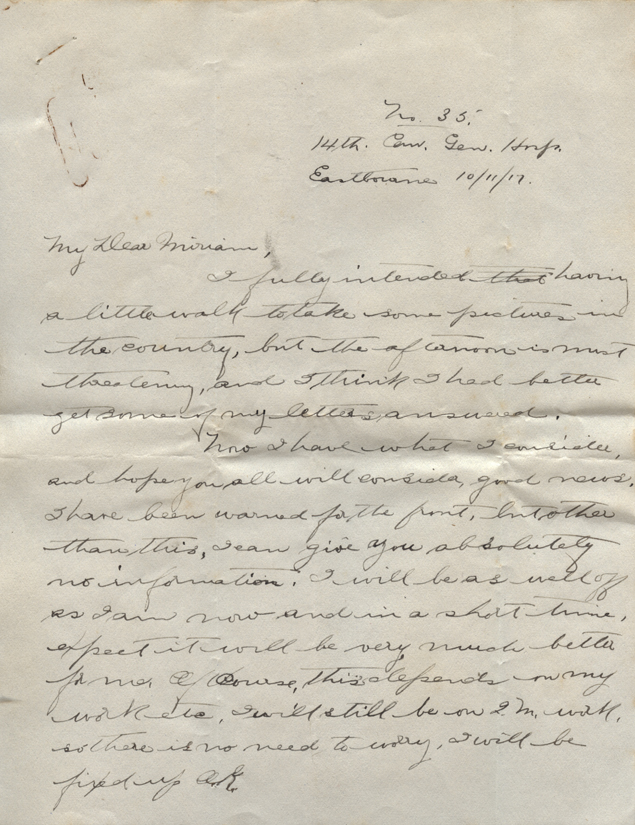 No. 35.
14th. Can. Gen. Hosp.
Eastbourne 10/11/17.
My Dear Miriam,
I fully intended that having
a little walk to take some pictures in
the country, but the afternoon is most
threatening, and I think I had better
get some of my letters answered.
Now I have what I consider,
and hope you all will consider, good news.
I have been warned for the front, but other
than this, I can give you absolutely
no information. I will be as well off
as I am now and in a short time,
expect it will be very much better
for me. Of course, this depends on my
work etc, I will still be on Q.M. work,
so there is no need to worry, I will be
fixed up O.K.